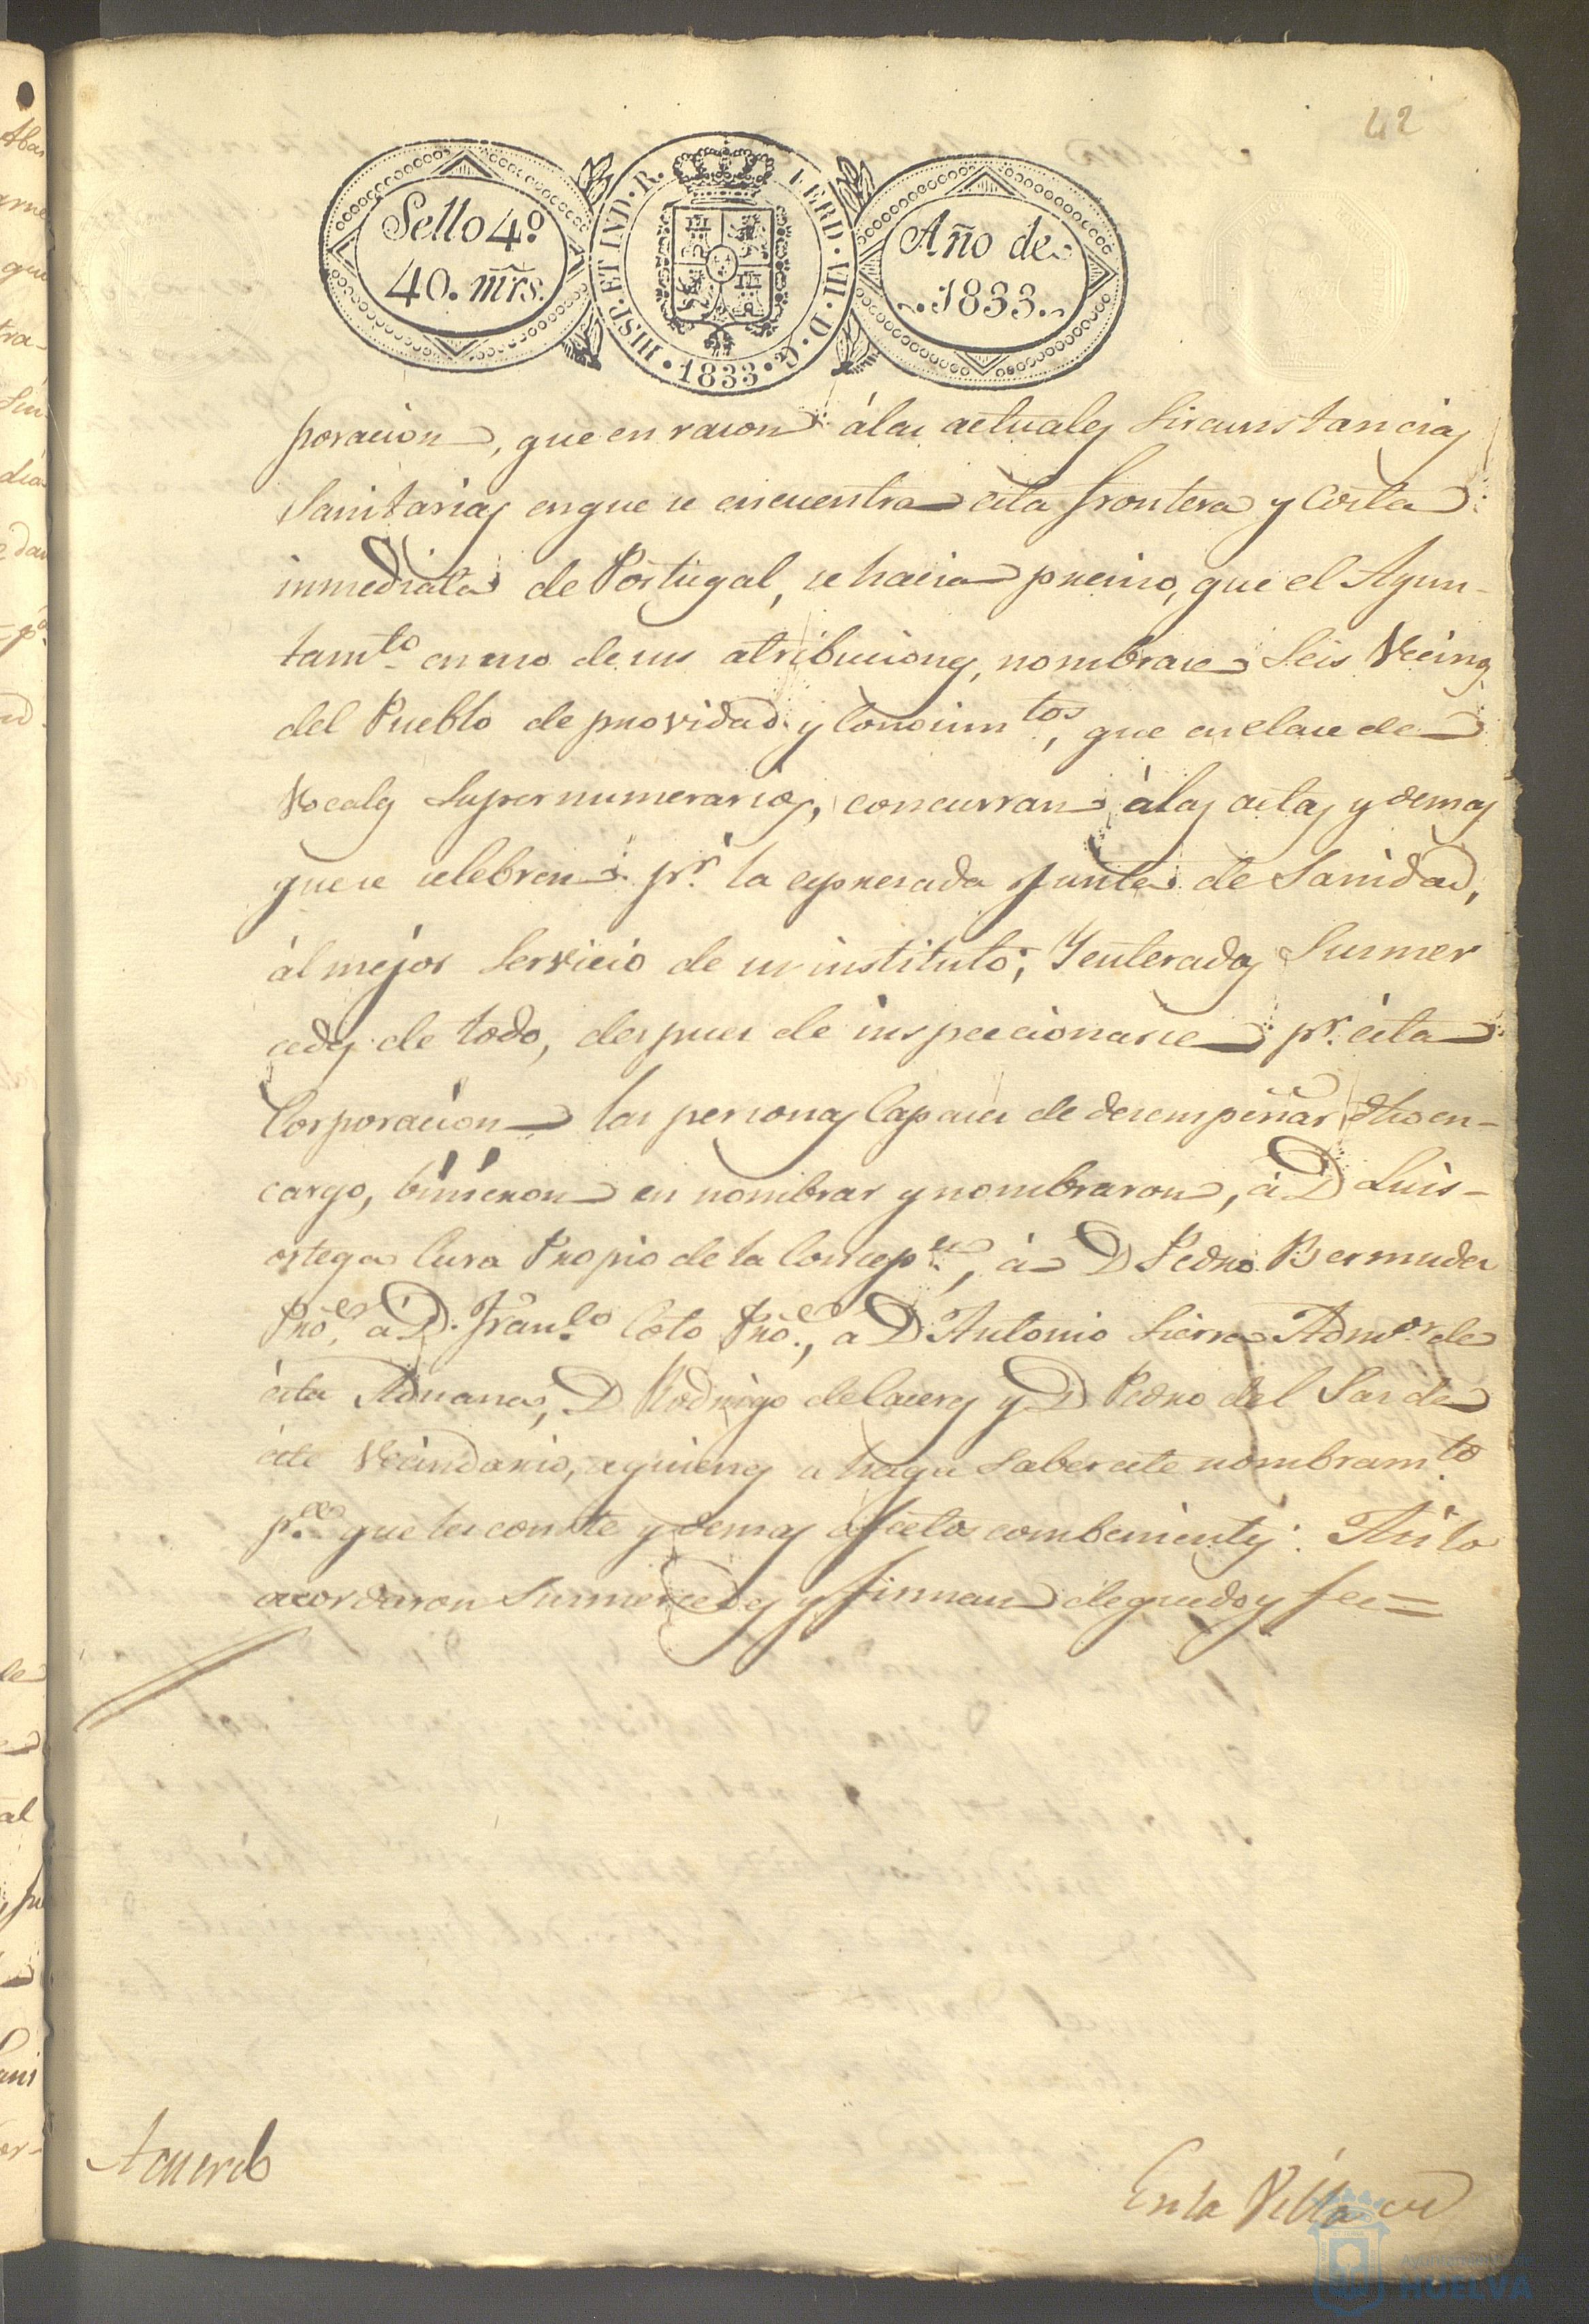 42
Sello 4º
40. mr̃s.
HISP. ET IND. R.
FERD. VII. D. G.
1833
Año de
1833.
poracion, que en racon á las actuales Sircunstancias
Sanitarias en que se encuentra esta frontera y Costa
inmediata de Portugal, se hacia preciso, que el Ayun-
tamto en uso de sus atribuciones, nombrase Seis Vecinos
del Pueblo de providad y Conocimtos, que en clase de
Vocales Supernumerarios, concurran á las actas y demas
que se celebren pr. la expresada Junta de Sanidad,
ál mejor Servicio de su instituto; Y enterados Sus mer
cedes de todo, despues de inspeccionarse pr. esta
Corporacion las personas Capaces de desempeñar dho en-
cargo, binieron en nombrar y nombraron, á D Luis
ortega Cura Propio de la Concepn, á D Pedro Bermudez
Pñoe, a D. Franco Coto Pño, a D Antonio Sierra Admor de
esta Aduana, D Rodrigo de Caceres y D Pedro del Sar de
este Vecindario, a quienes se haga Saber este nombramto
pa que les conste y demas efectos combenientes: Asi lo
acordaron Sus mercedes y firman de que doy fee=
Acuerdo
En la Villa de
AYUNTAMIENTO DE
HUELVA